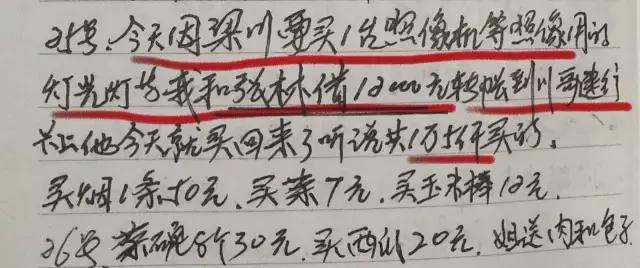 25号.今天因梁川要买1台照像机等照像用的
灯光灯与我和张林借12000元转帐到川哥建行
卡上他今天就买回来了听说共1万5仟买的.
买烟1条50元.买菜7元.买玉米棒12元.
26号.茶碗8个30元.买西瓜20元.姐送肉和包子